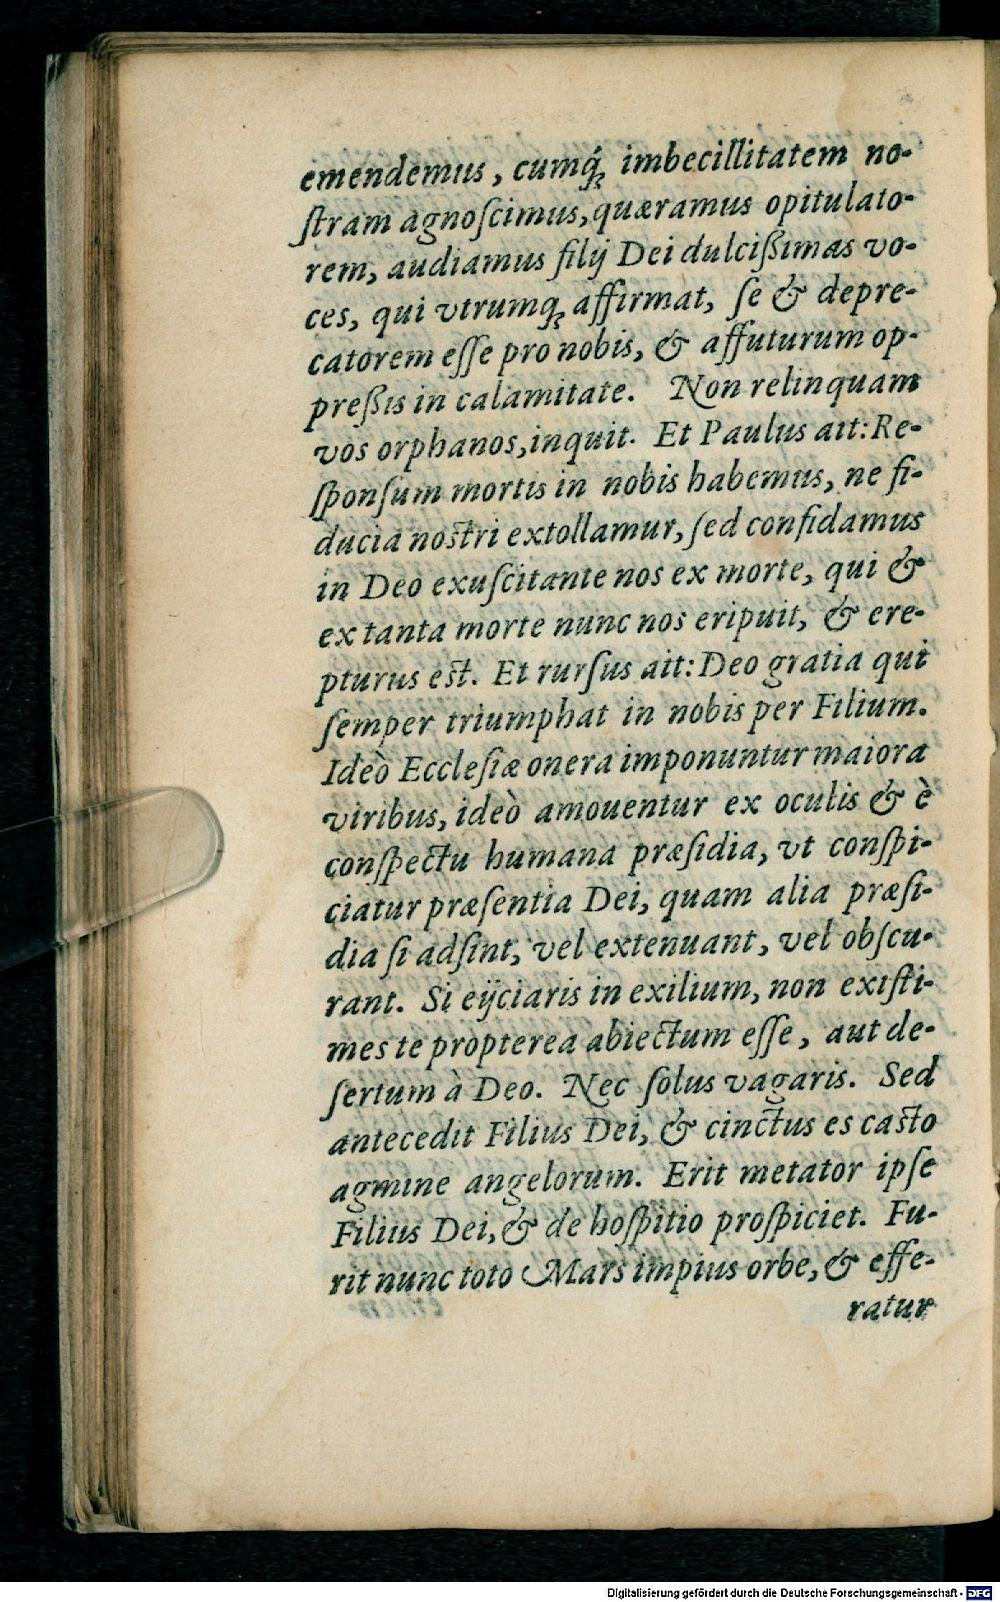 emendemus, cumq́; imbecillitatem no-
ſtram agnoſcimus, quæramus opitulato-
rem, audiamus filij Dei dulciſsimas vo-
ces, qui vtrumq; affirmat, ſe & depre-
catorem eſſe pro nobis, & affuturum op-
preſsis in calamitate. Non relinquam
vos orphanos, inquit. Et Paulus ait: Re-
ſponſum mortis in nobis habemus, ne fi-
ducia noſtri extollamur, ſed confidamus
in Deo exuſcitante nos ex morte, qui &
ex tanta morte nunc nos eripuit, & ere-
pturus eſt. Et rurſus ait: Deo gratia qui
ſemper triumphat in nobis per Filium.
Ideò Eccleſiæ onera imponuntur maiora
viribus, ideò amouentur ex oculis & è
conſpectu humana præſidia, vt conſpi-
ciatur præſentia Dei, quam alia præſi-
dia ſi adſint, vel extenuant, vel obſcu-
rant. Si eijciaris in exilium, non exiſti-
mes te propterea abiectum eſſe, aut de-
ſertum à Deo. Nec ſolus vagaris. Sed
antecedit Filius Dei, & cinctus es caſto
agmine angelorum. Erit metator ipſe
Filius Dei, & de hoſpitio proſpiciet. Fu-
rit nunc toto Mars impius orbe, & effe-
ratur
Digitalisierung gefördert durch die Deutsche Forschungsgemeinschaft - DFG